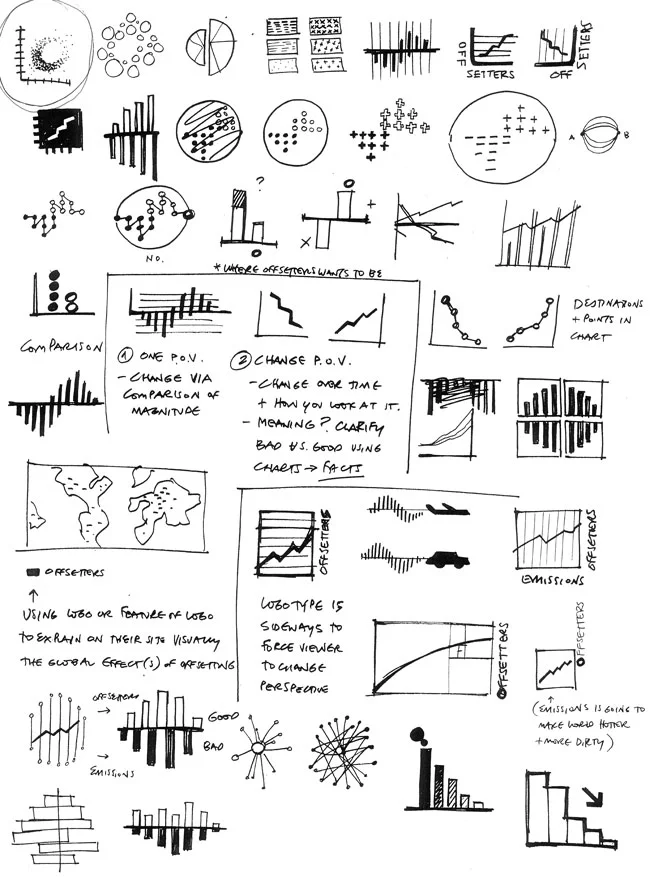 OFF
SETTERS
OFF
SETTERS
A
B
?
+
X
NO.
* WHERE OFFSETTERS WANTS TO BE
COMPARISON
① ONE P.O.V.
- CHANGE VIA
COMPARISON OF
MAGNITUDE
② CHANGE P.O.V.
- CHANGE OVER TIME
+ HOW YOU LOOK AT IT.
- MEANING? CLARIFY
BAD VS. GOOD USING
CHARTS → FACTS
DESTINATIONS
+ POINTS IN
CHART
OFFSETTERS
↑
USING LOGO OR FEATURE OF LOGO
TO EXPLAIN ON THEIR SITE VISUALLY
THE GLOBAL EFFECT(S) OF OFFSETTING
OFFSETTERS
LOGOTYPE IS
SIDEWAYS TO
FORCE VIEWER
TO CHANGE
PERSPECTIVE
OFFSETTERS
EMISSIONS
OFFSETTERS
OFFSETTERS
↑
(EMISSIONS IS GOING TO
MAKE WORLD HOTTER
+ MORE DIRTY)
OFFSETTERS →
→
EMISSIONS
GOOD
BAD